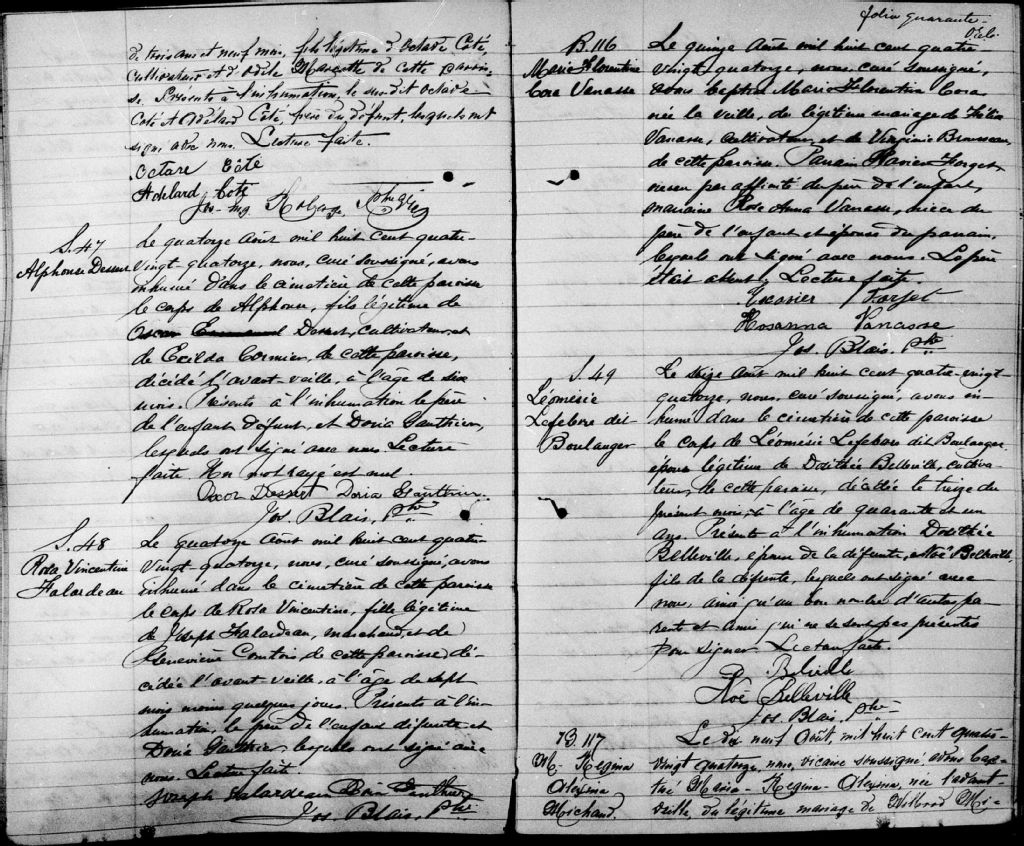 de trois ans et neuf mois, fils légitime d'Octave Côté,
cultivateur et d'Odile Marcotte de cette parois-
se. Présents à l'inhumation, le susdit Octave
Coté et Adélard Côté, frère du défunt, lesquels ont
signé avec nous. Lecture faite.
Octave Côté
Adélard Côté
S. 47
Alphonse Dessert
Le quatorze Août mil huit cent quatre-
vingt-quatorze, nous, curé soussigné, avons
inhumé dans le cimetière de cette paroisse
le corps de Alphonse, fils légitime de
Oscar Dessert, cultivateur, et
de Exilda Cormier, de cette paroisse,
décédé l'avant-veille, à l'âge de six
mois. Présents à l'inhumation le père
de l'enfant défunt, et Doria Gauthier,
lesquels ont signé avec nous. Lecture
faite. Un mot rayé est nul.
Oscar Dessert Doria Gauthier
Jos. Blais, Ptre
S. 48
Rosa Vincentine
Falardeau
Le quatorze Août mil huit cent quatre-
vingt quatorze, nous, curé soussigné, avons
inhumé dans le cimetière de cette paroisse
le corps de Rosa Vincentine, fille légitime
de Joseph Falardeau, marchand, et de
Geneviève Comtois, de cette paroisse, dé-
cédée l'avant-veille, à l'âge de sept
mois moins quelques jours. Présents à l'in-
humation le père de l'enfant défunte et
Doria Gauthier lesquels ont signé avec
nous. Lecture faite.
Joseph Falardeau Doria Gauthier
Jos. Blais, Ptre
folio quarante-
B. 116
Marie Florentine
Cora Vanasse
Le quinze Août mil huit cent quatre
vingt-quatorze, nous, curé soussigné,
avons baptisé Marie Florentine Cora
née la veille, du légitime mariage de Félix
Vanasse, cultivateur, et de Virginie Brousseau,
de cette paroisse. Parrain Xavier Forget,
neveu par affinité du père de l'enfant,
marraine Rose Anna Vanasse, nièce du
père de l'enfant et épouse du parrain,
lesquels ont signé avec nous. Le père
était absent. Lecture faite.
Exavier Forget
Rosanna Vanasse
Jos. Blais, Ptre
S. 49
Léomésie
Lefebvre dit
Boulanger
Le seize Août mil huit cent quatre-vingt-
quatorze, nous, curé soussigné, avons in-
humé dans le cimetière de cette paroisse
le corps de Léomésie Lefebvre dit Boulanger,
épouse légitime de Dosithée Belleville, cultiva-
teur, de cette paroisse, décédée le treize du
présent mois, à l'âge de quarante et un
ans. Présents à l'inhumation Dosithée
Belleville, époux de la défunte, Noé Belleville,
fils de la défunte, lesquels ont signé avec
nous, ainsi qu'un bon nombre d'autres pa-
rents et amis qui ne se sont pas présentés
pour signer. Lecture faite.
D. Belleville
Noé Belleville
Jos. Blais, Ptre
B. 117
M. Regina
Alexina
Michaud
Le dix neuf Août, mil huit cent quatre-
vingt quatorze, nous, vicaire soussigné, avons bap-
tisé Maria-Regina-Alexina, née l'avant
veille, du légitime mariage de Wilbrod Mi-